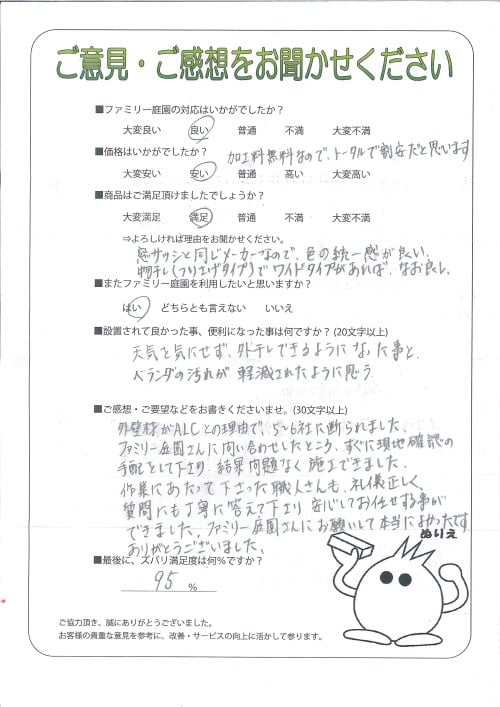 ご意見・ご感想をお聞かせください
■ファミリー庭園の対応はいかがでしたか？
大変良い 良い 普通 不満 大変不満
■価格はいかがでしたか？ 加工料無料なので、トータルで割安だと思います
大変安い 安い 普通 高い 大変高い
■商品はご満足頂けましたでしょうか？
大変満足 満足 普通 不満 大変不満
⇒よろしければ理由をお聞かせください。
窓サッシと同じメーカーなので、色の統一感が良い。
物干し(フリエゲタイプ)でワイドタイプがあれば、なお良し。
■またファミリー庭園を利用したいと思いますか？
はい どちらとも言えない いいえ
■設置されて良かった事、便利になった事は何ですか？(20文字以上)
天気を気にせず、外干しできるようになった事と、
ベランダの汚れが軽減されたように思う。
■ご感想・ご要望などをお書きくださいませ。(30文字以上)
外壁材がALCとの理由で、5〜6社に断られました。
ファミリー庭園さんに問い合わせしたところ、すぐに現地確認の
手配をして下さり、結果問題なく施工できました。
作業にあたって下さった職人さんも、礼儀正しく、
質問にも丁寧に答えて下さり安心してお任せする事が
できました。ファミリー庭園さんにお願いして本当によかったです
ありがとうございました。
■最後に、ズバリ満足度は何％ですか？
95 ％
ぬりえ
ご協力頂き、誠にありがとうございました。
お客様の貴重な意見を参考に、改善・サービスの向上に活かして参ります。